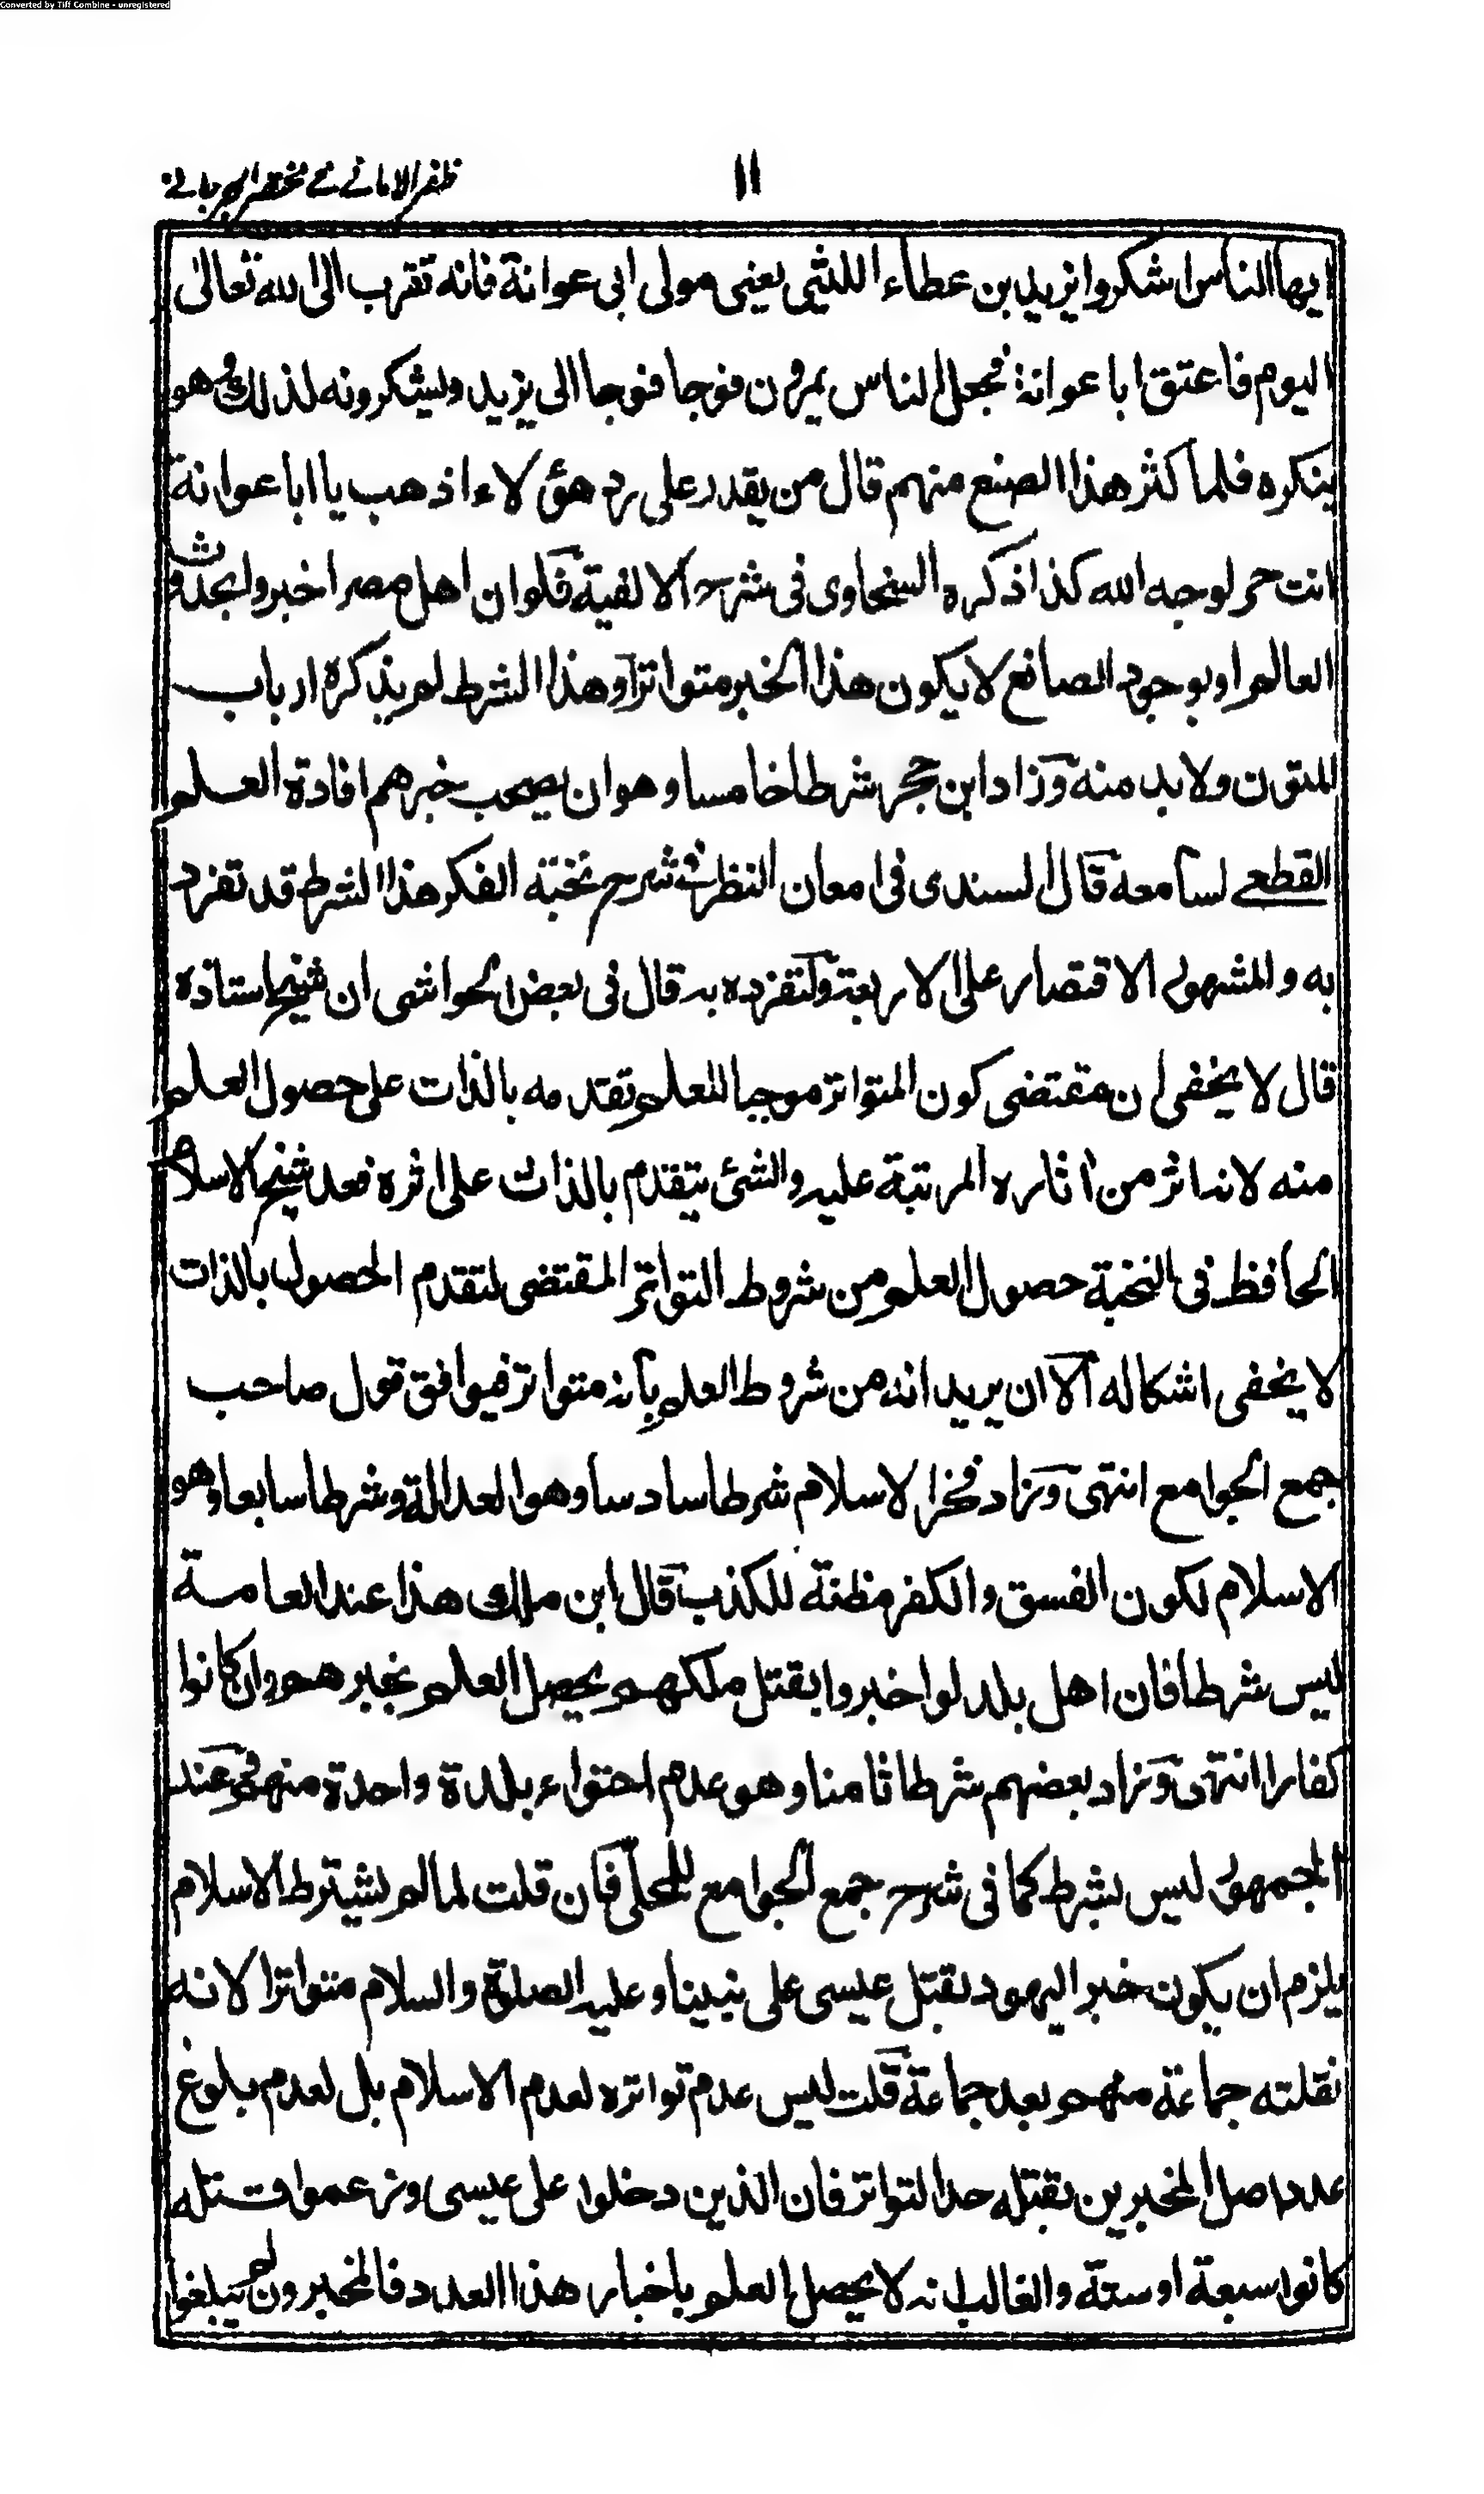 Converted by Tiff Combine - unregistered
١١
ظفر الاماني في مختصر الجرجاني
ايها الناس اشكروا يزيد بن عطاء الليثي يعني مولى ابى عوانة فانه تقرب الى الله تعالى
اليوم فاعتق ابا عوانة فجعل الناس يمرون فوجا فوجا الى يزيد ويشكرونه لذلك وهو
ينكره فلما كثر هذا الصنع منهم قال من يقدر على رد هؤلاء اذهب يا ابا عوانة
انت حر لوجه الله كذا ذكره السخاوى فى شرح الالفية فلو ان اهل مصر اخبروا بحدوث
العالم او بوجود الصانع لا يكون هذا الخبر متواترا وهذا الشرط لم يذكره ارباب
المتون ولا بد منه وزاد ابن حجر شرطا خامسا وهو ان يصحب خبرهم افادة العلم
القطعي لسامعه قال السندى فى امعان النظر فى شرح نخبة الفكر هذا الشرط قد تفرد
به والمشهور الاقتصار على الاربعة ولتفرده به قال فى بعض الحواشى ان شيخ استاذه
قال لا يخفى ان مقتضى كون المتواتر موجبا للعلم تقدمه بالذات على حصول العلم
منه لانه اثر من اثاره المرتبة عليه والشئ يتقدم بالذات على اثره فعد شيخ الاسلام
الحافظ فى النخبة حصول العلم من شروط التواتر المقتضى لتقدم الحصول بالذات
لا يخفى اشكاله الا ان يريد انه من شروط العلم بانه متواتر فيوافق قول صاحب
جمع الجوامع انتهى وزاد فخر الاسلام شرطا سادسا وهو العدالة وشرطا سابعا وهو
الاسلام لكون الفسق والكفر مظنة للكذب قال ابن ملك هذا عند العامة
ليس شرطا فان اهل بلد لو اخبروا بقتل ملكهم يحصل العلم بخبرهم وان كانوا
كفارا انتهى وزاد بعضهم شرطا ثامنا وهو عدم احتواء بلدة واحدة منهم وعند
الجمهور ليس بشرط كما فى شرح جمع الجوامع للمحلى فان قلت لما لم يشترط الاسلام
يلزم ان يكون خبر اليهود بقتل عيسى على نبينا وعليه الصلوة والسلام متواترا لانه
نقلته جماعة منهم بعد جماعة قلت ليس عدم تواتره لعدم الاسلام بل لعدم بلوغ
عدد اصل المخبرين بقتله حد التواتر فان الذين دخلوا على عيسى وزعموا قتله
كانوا سبعة او ستة والغالب انه لا يحصل العلم باخبار هذا العدد فالمخبرون لم يبلغوا